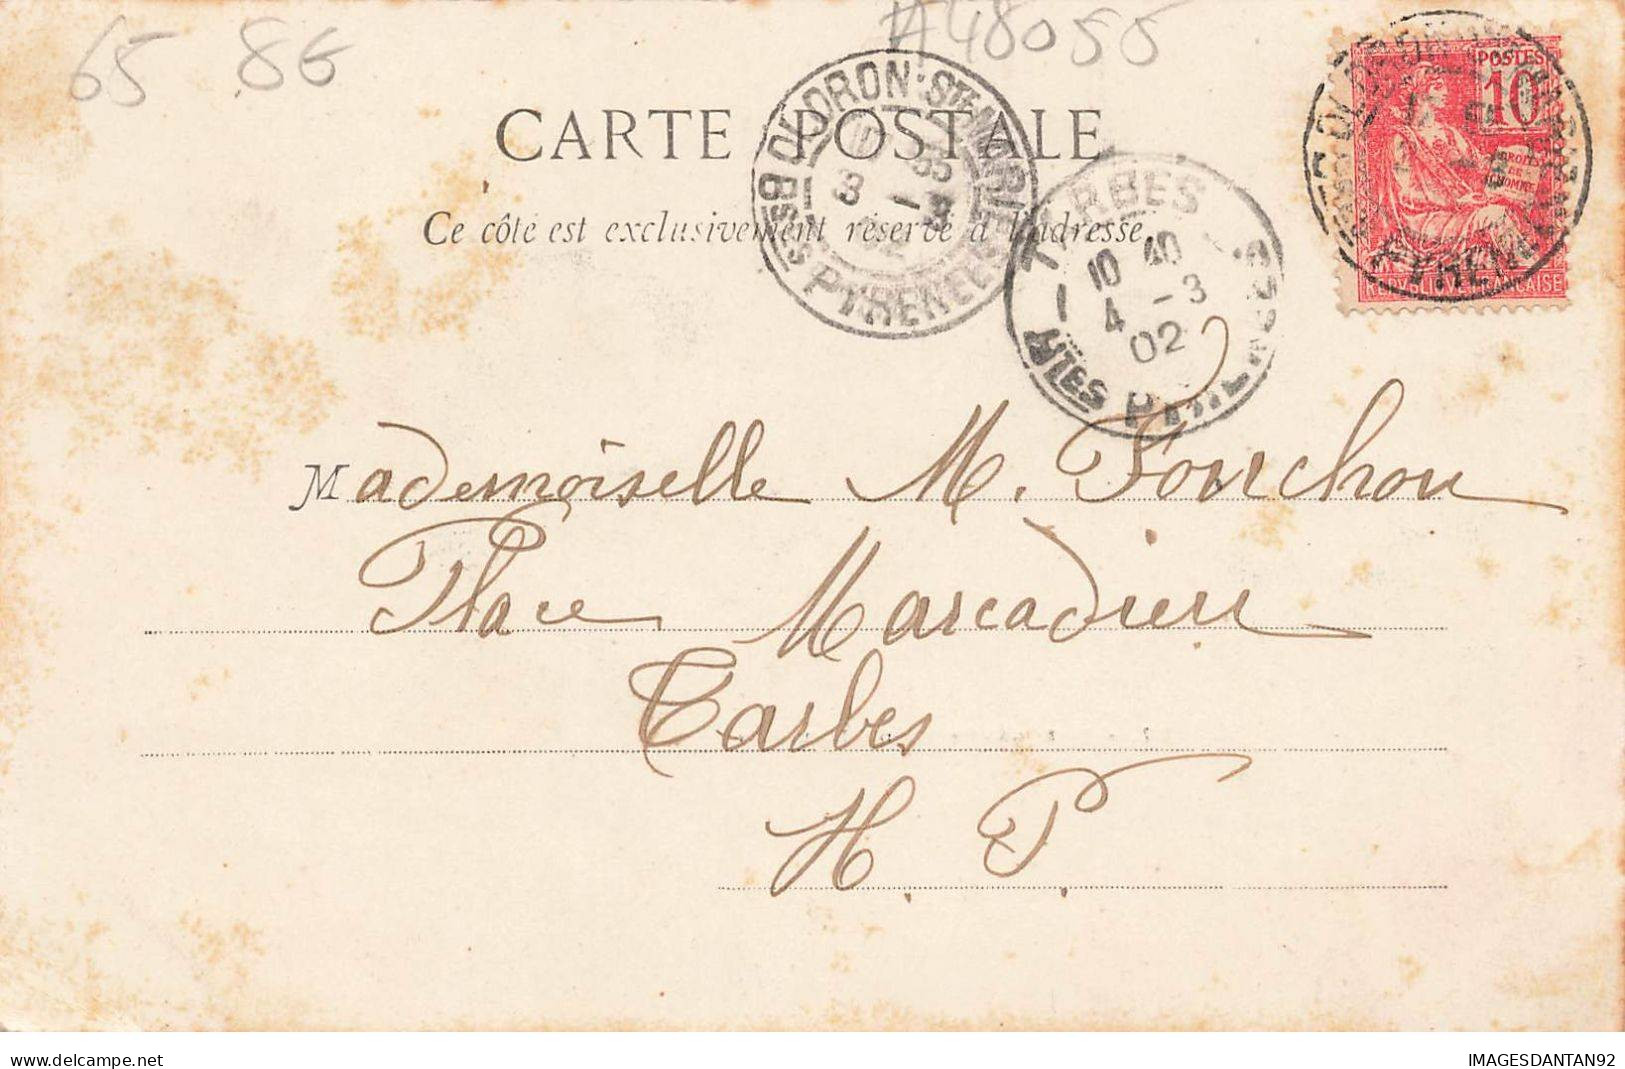 65 86 A48055
CARTE POSTALE
Ce côté est exclusivement réservé à l'adresse
OLORON-STE-MARIE
BSES PYRENEES
3 -3
TARBES
10 40
4 -3
02
HTES PYRENEES
POSTES
10
DROITS
DE
L'HOMME
REPVBLIQVE FRANCAISE
PYRENEES
Mademoiselle M. Fourchou
Place Marcadieu
Tarbes
H. P.
delcampe.net
IMAGESDANTAN92